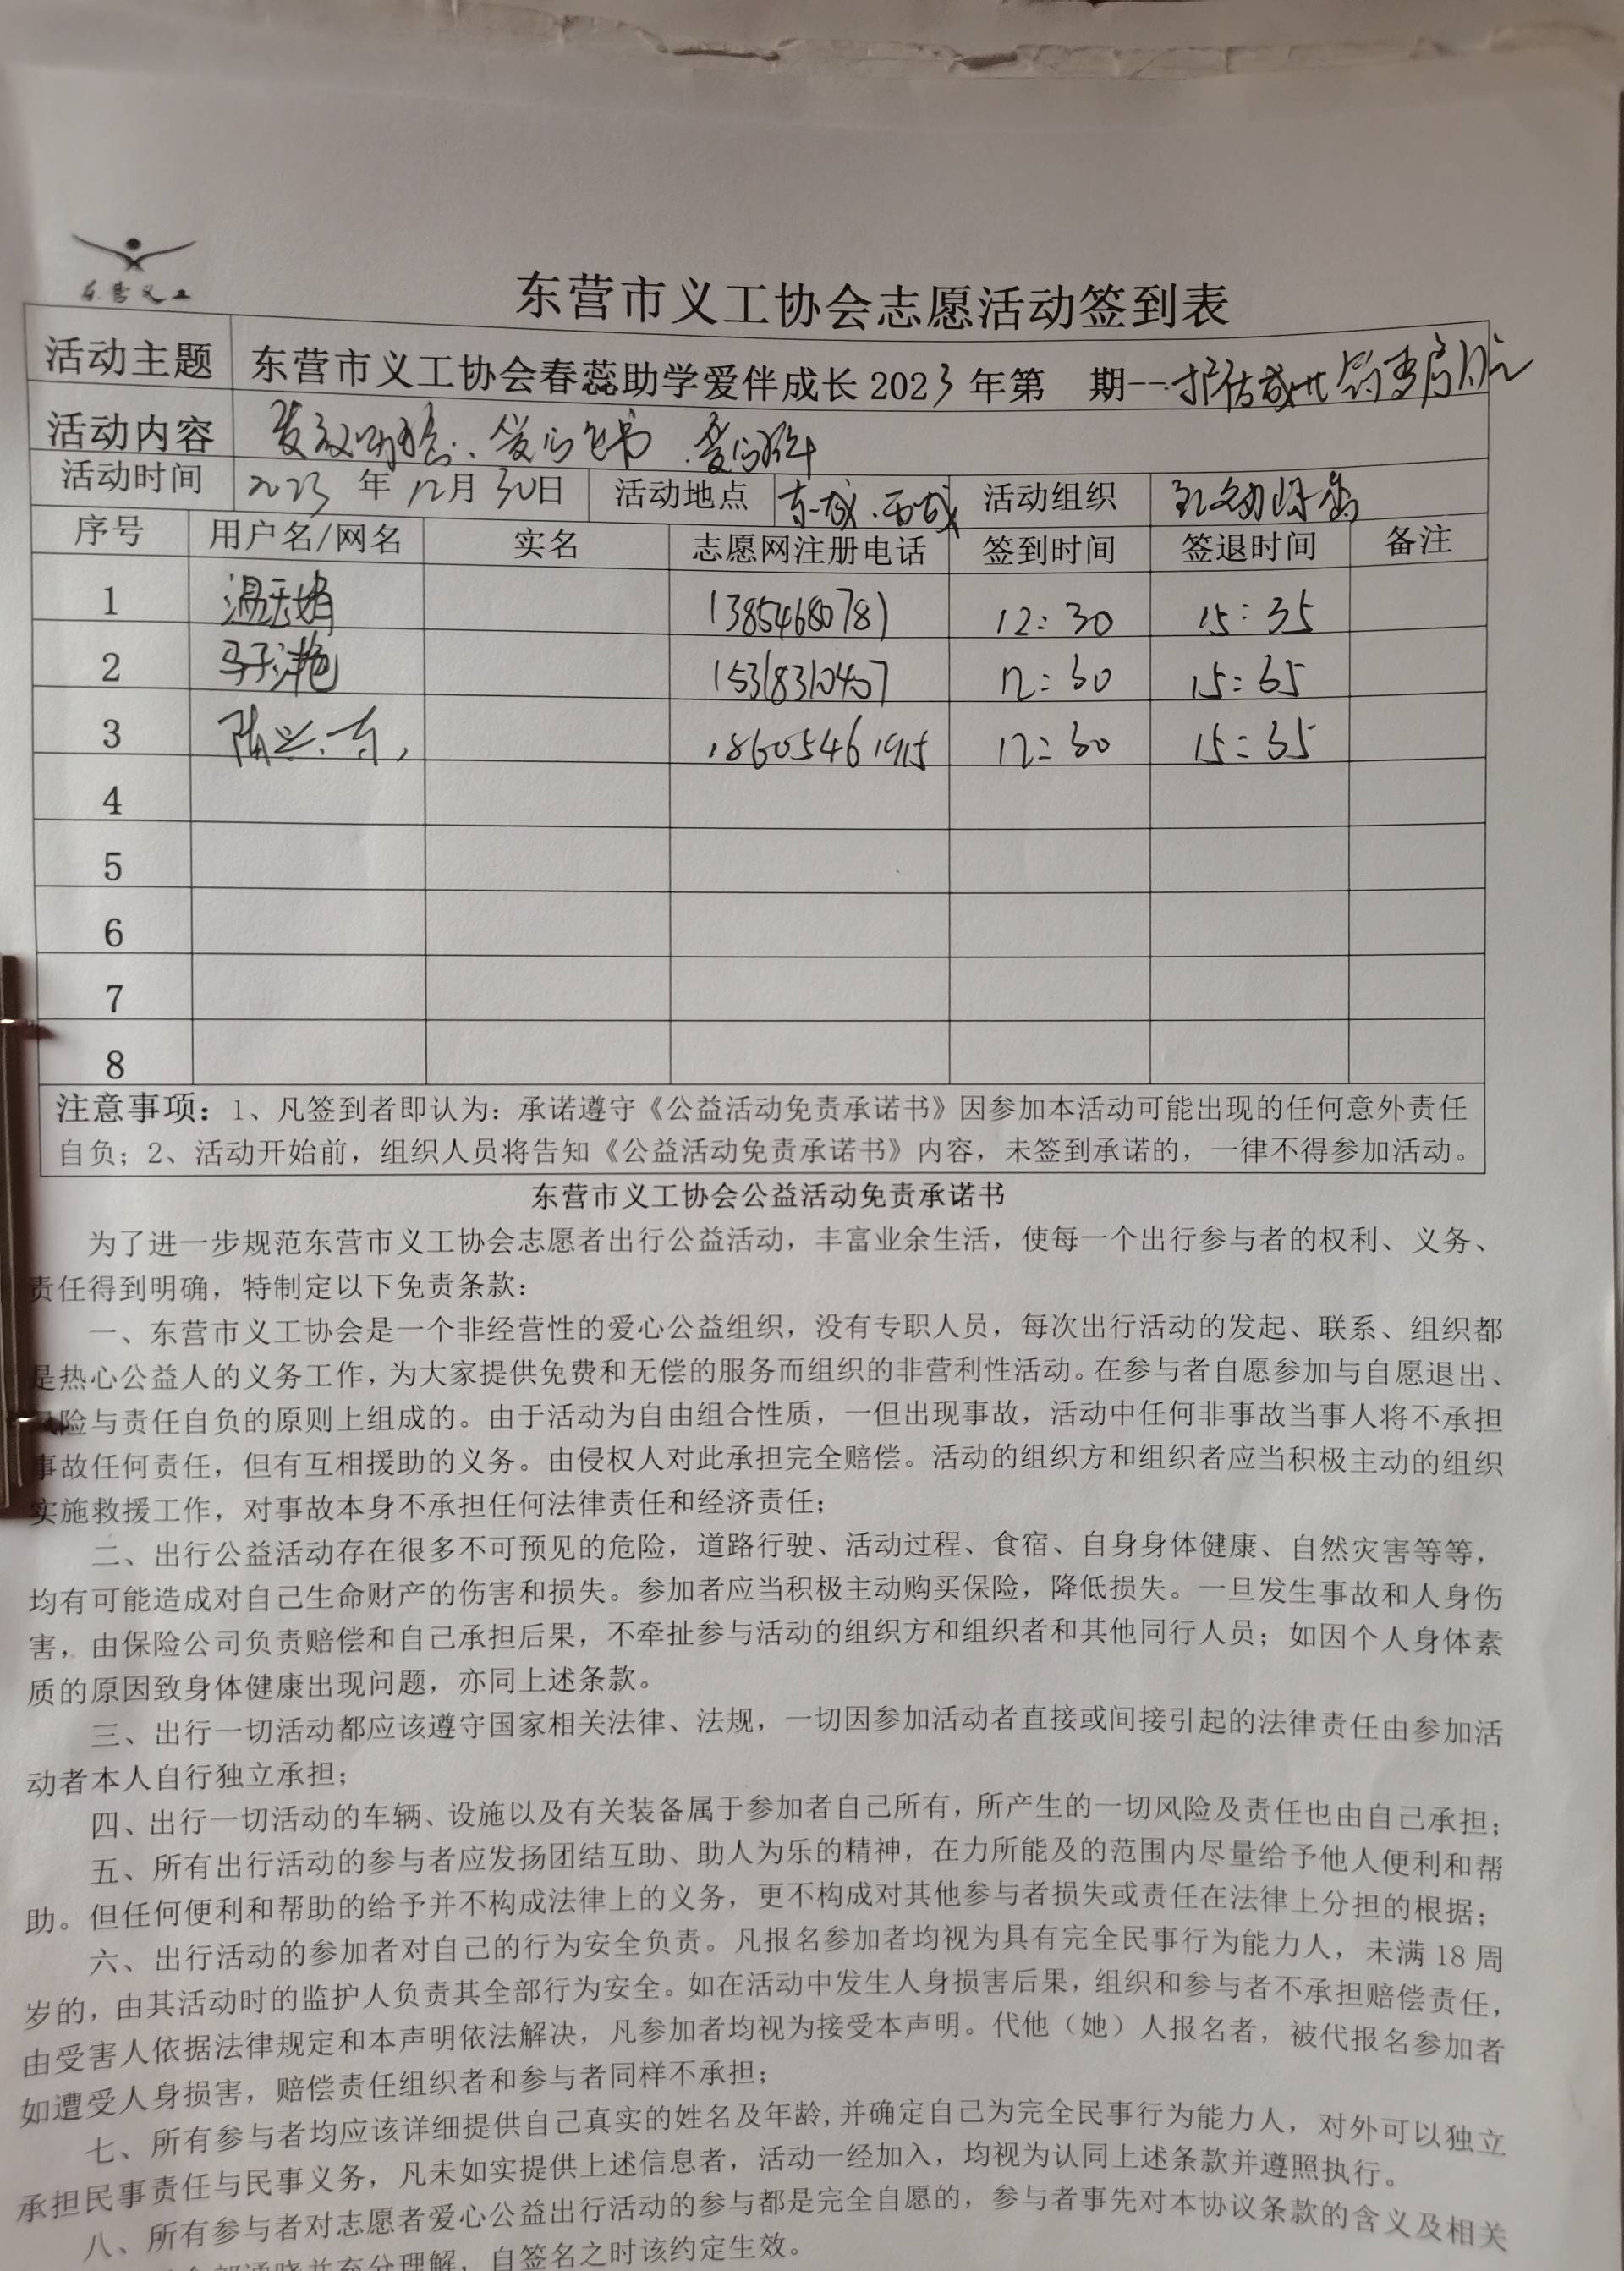 东营义工
东营市义工协会志愿活动签到表
活动主题 东营市义工协会春蕊助学爱伴成长 2023 年第 期--
活动内容 爱心 爱心
活动时间 2023 年 12月 30日 活动地点 东城、西城 活动组织
序号 用户名/网名 实名 志愿网注册电话 签到时间 签退时间 备注
1 13854680781 12:30 15:35
2 马子艳 15318310407 12:30 15:35
3 陈兴 18605461915 12:30 15:35
4
5
6
7
8
注意事项：1、凡签到者即认为：承诺遵守《公益活动免责承诺书》因参加本活动可能出现的任何意外责任
自负；2、活动开始前，组织人员将告知《公益活动免责承诺书》内容，未签到承诺的，一律不得参加活动。
东营市义工协会公益活动免责承诺书
为了进一步规范东营市义工协会志愿者出行公益活动，丰富业余生活，使每一个出行参与者的权利、义务、
责任得到明确，特制定以下免责条款：
一、东营市义工协会是一个非经营性的爱心公益组织，没有专职人员，每次出行活动的发起、联系、组织都
是热心公益人的义务工作，为大家提供免费和无偿的服务而组织的非营利性活动。在参与者自愿参加与自愿退出、
风险与责任自负的原则上组成的。由于活动为自由组合性质，一但出现事故，活动中任何非事故当事人将不承担
事故任何责任，但有互相援助的义务。由侵权人对此承担完全赔偿。活动的组织方和组织者应当积极主动的组织
实施救援工作，对事故本身不承担任何法律责任和经济责任；
二、出行公益活动存在很多不可预见的危险，道路行驶、活动过程、食宿、自身身体健康、自然灾害等等，
均有可能造成对自己生命财产的伤害和损失。参加者应当积极主动购买保险，降低损失。一旦发生事故和人身伤
害，由保险公司负责赔偿和自己承担后果，不牵扯参与活动的组织方和组织者和其他同行人员；如因个人身体素
质的原因致身体健康出现问题，亦同上述条款。
三、出行一切活动都应该遵守国家相关法律、法规，一切因参加活动者直接或间接引起的法律责任由参加活
动者本人自行独立承担；
四、出行一切活动的车辆、设施以及有关装备属于参加者自己所有，所产生的一切风险及责任也由自己承担；
五、所有出行活动的参与者应发扬团结互助、助人为乐的精神，在力所能及的范围内尽量给予他人便利和帮
助。但任何便利和帮助的给予并不构成法律上的义务，更不构成对其他参与者损失或责任在法律上分担的根据；
六、出行活动的参加者对自己的行为安全负责。凡报名参加者均视为具有完全民事行为能力人，未满 18 周
岁的，由其活动时的监护人负责其全部行为安全。如在活动中发生人身损害后果，组织和参与者不承担赔偿责任，
由受害人依据法律规定和本声明依法解决，凡参加者均视为接受本声明。代他（她）人报名者，被代报名参加者
如遭受人身损害，赔偿责任组织者和参与者同样不承担；
七、所有参与者均应该详细提供自己真实的姓名及年龄,并确定自己为完全民事行为能力人，对外可以独立
承担民事责任与民事义务，凡未如实提供上述信息者，活动一经加入，均视为认同上述条款并遵照执行。
八、所有参与者对志愿者爱心公益出行活动的参与都是完全自愿的，参与者事先对本协议条款的含义及相关
全部通晓并充分理解，自签名之时该约定生效。